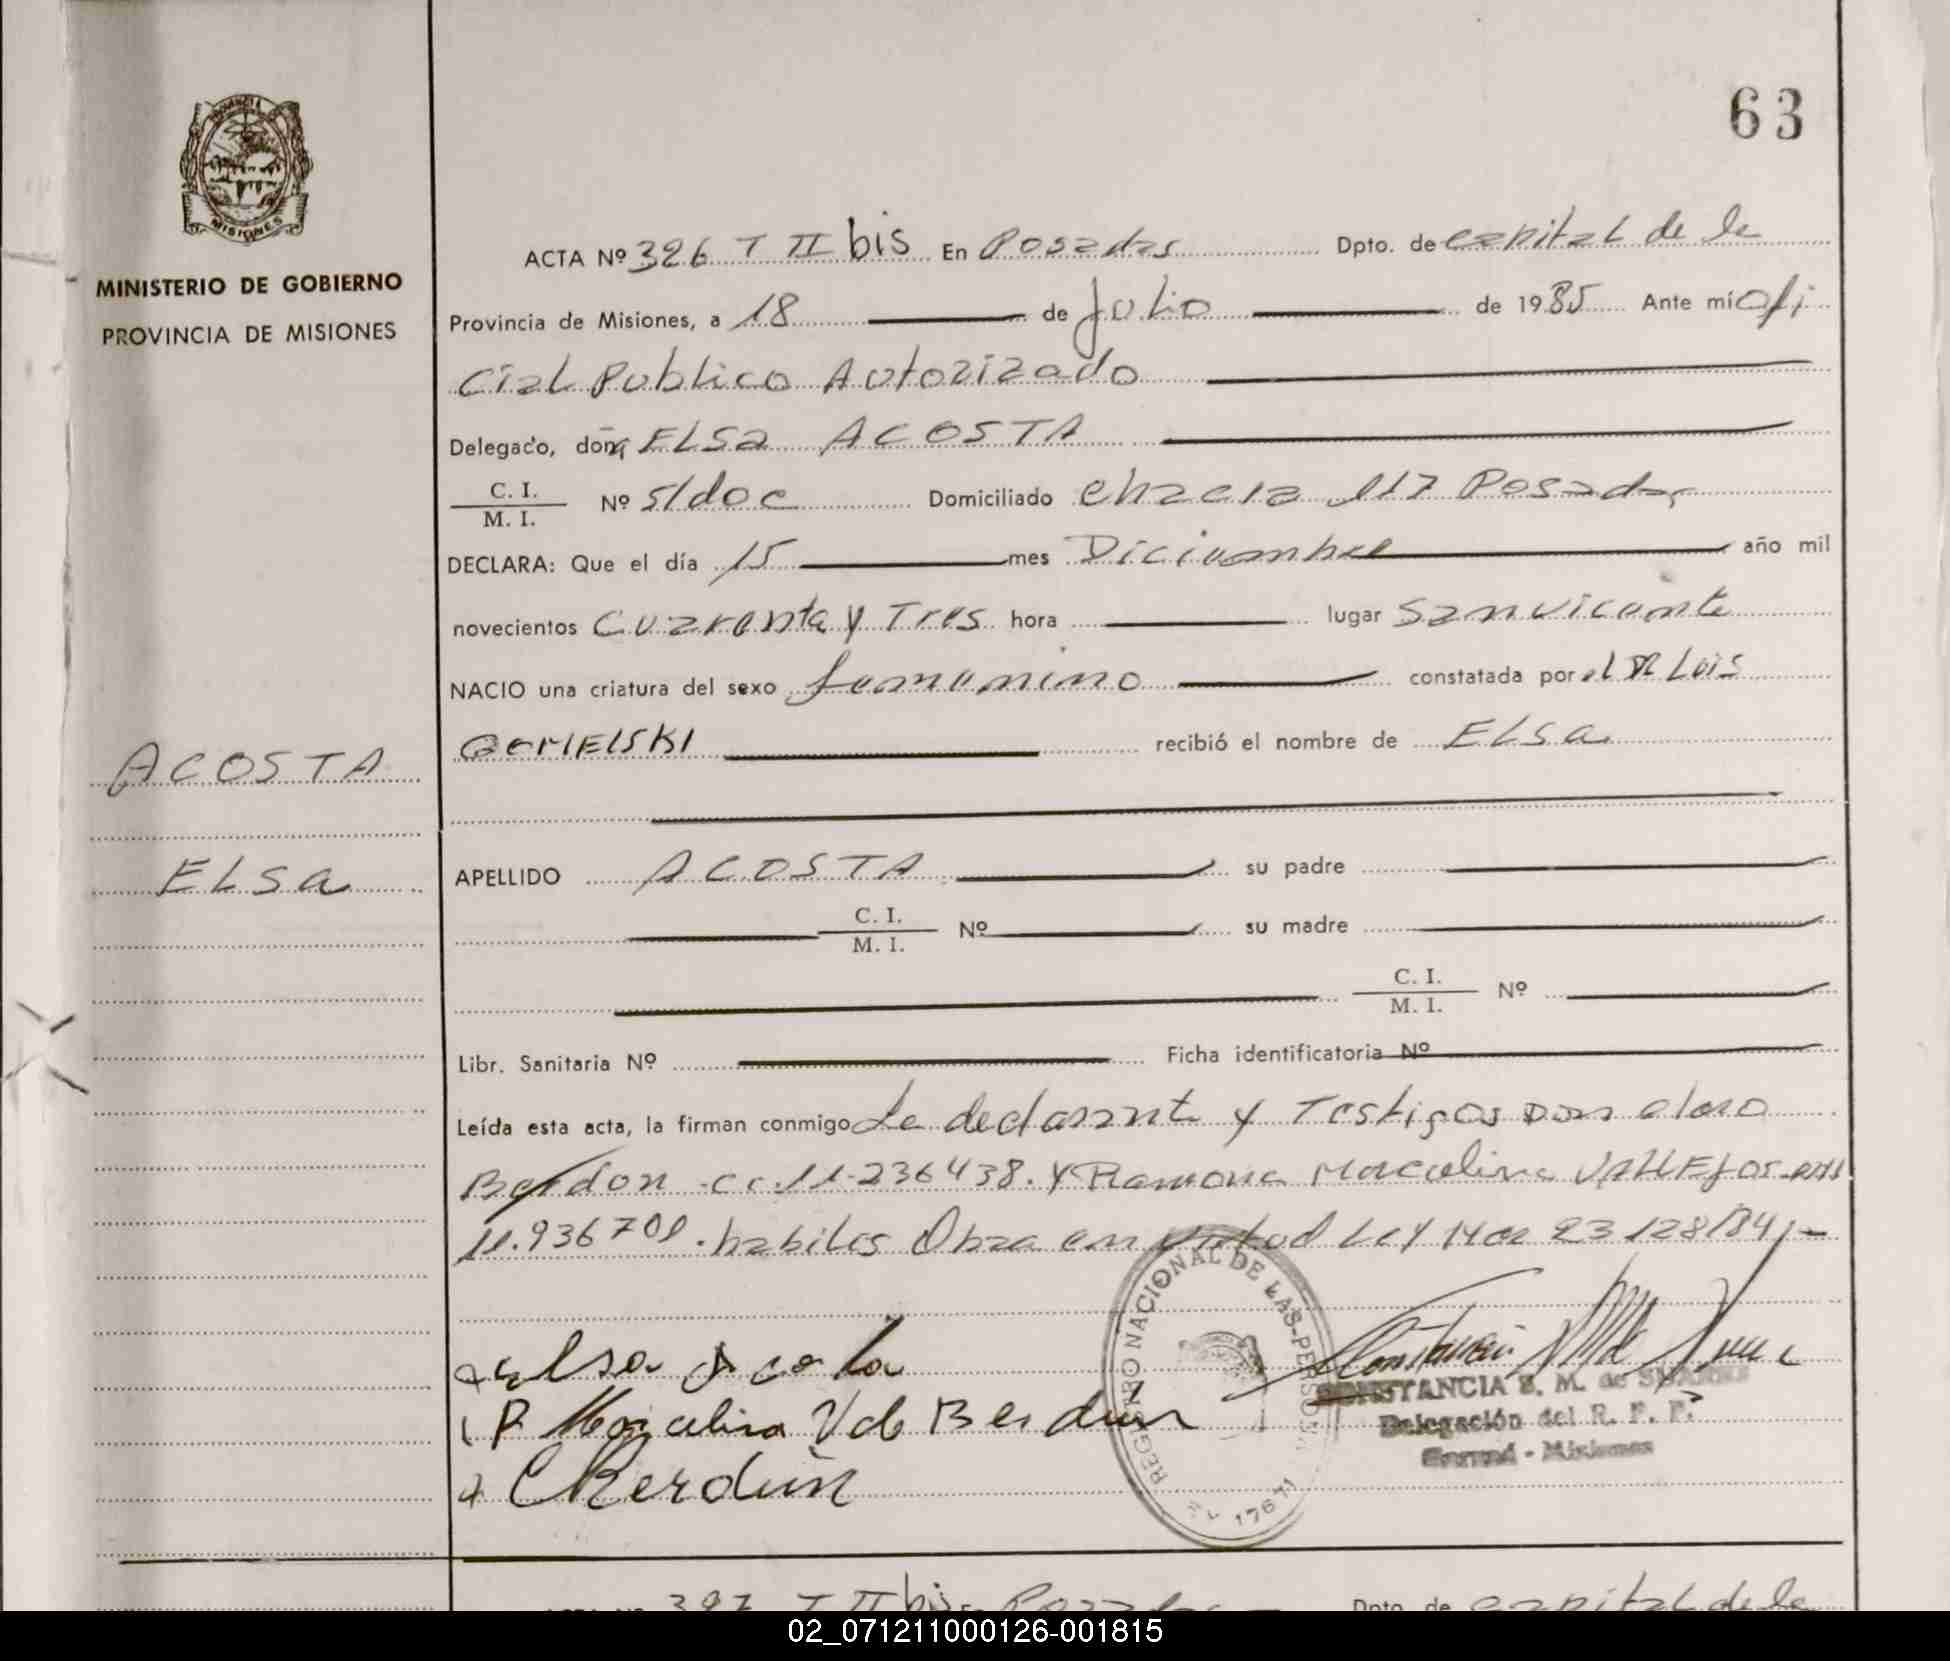 63
PROVINCIA
MISIONES
MINISTERIO DE GOBIERNO
PROVINCIA DE MISIONES
ACTA Nº 326 T II bis En Posadas Dpto. de capital de la
Provincia de Misiones, a 18 de Julio de 1985 Ante mí ofi
cial Publico Autorizado
Delegado, doña ELSa ACOSTA
C. I.
M. I. Nº s/doc Domiciliado chacra 117 Posadas
DECLARA: Que el día 15 mes Diciembre año mil
novecientos cuarenta y Tres hora lugar San vicente
NACIO una criatura del sexo femenino constatada por el DR Luis
recibió el nombre de ELSa
ACOSTA
ELSa
APELLIDO ACOSTA su padre
C. I.
M. I. Nº su madre
C. I.
M. I. Nº
Libr. Sanitaria Nº Ficha identificatoria Nº
Leída esta acta, la firman conmigo La declarante y Testigos Don
Berdon 11.236438. Y Ramona Marcelina VALLEJOS
11.936701. habiles Obra en virtud Ley 23128/84,-
Elsa Acosta
R Marcelina V de Berdún
CBerdún
REGISTRO NACIONAL DE LAS PERSONAS
17671
CONSTANCIA S. M. de SUAREZ
Delegación del R. P. P.
- Misiones
397 T II bis Posadas Dpto. de capital de la
02_071211000126-001815